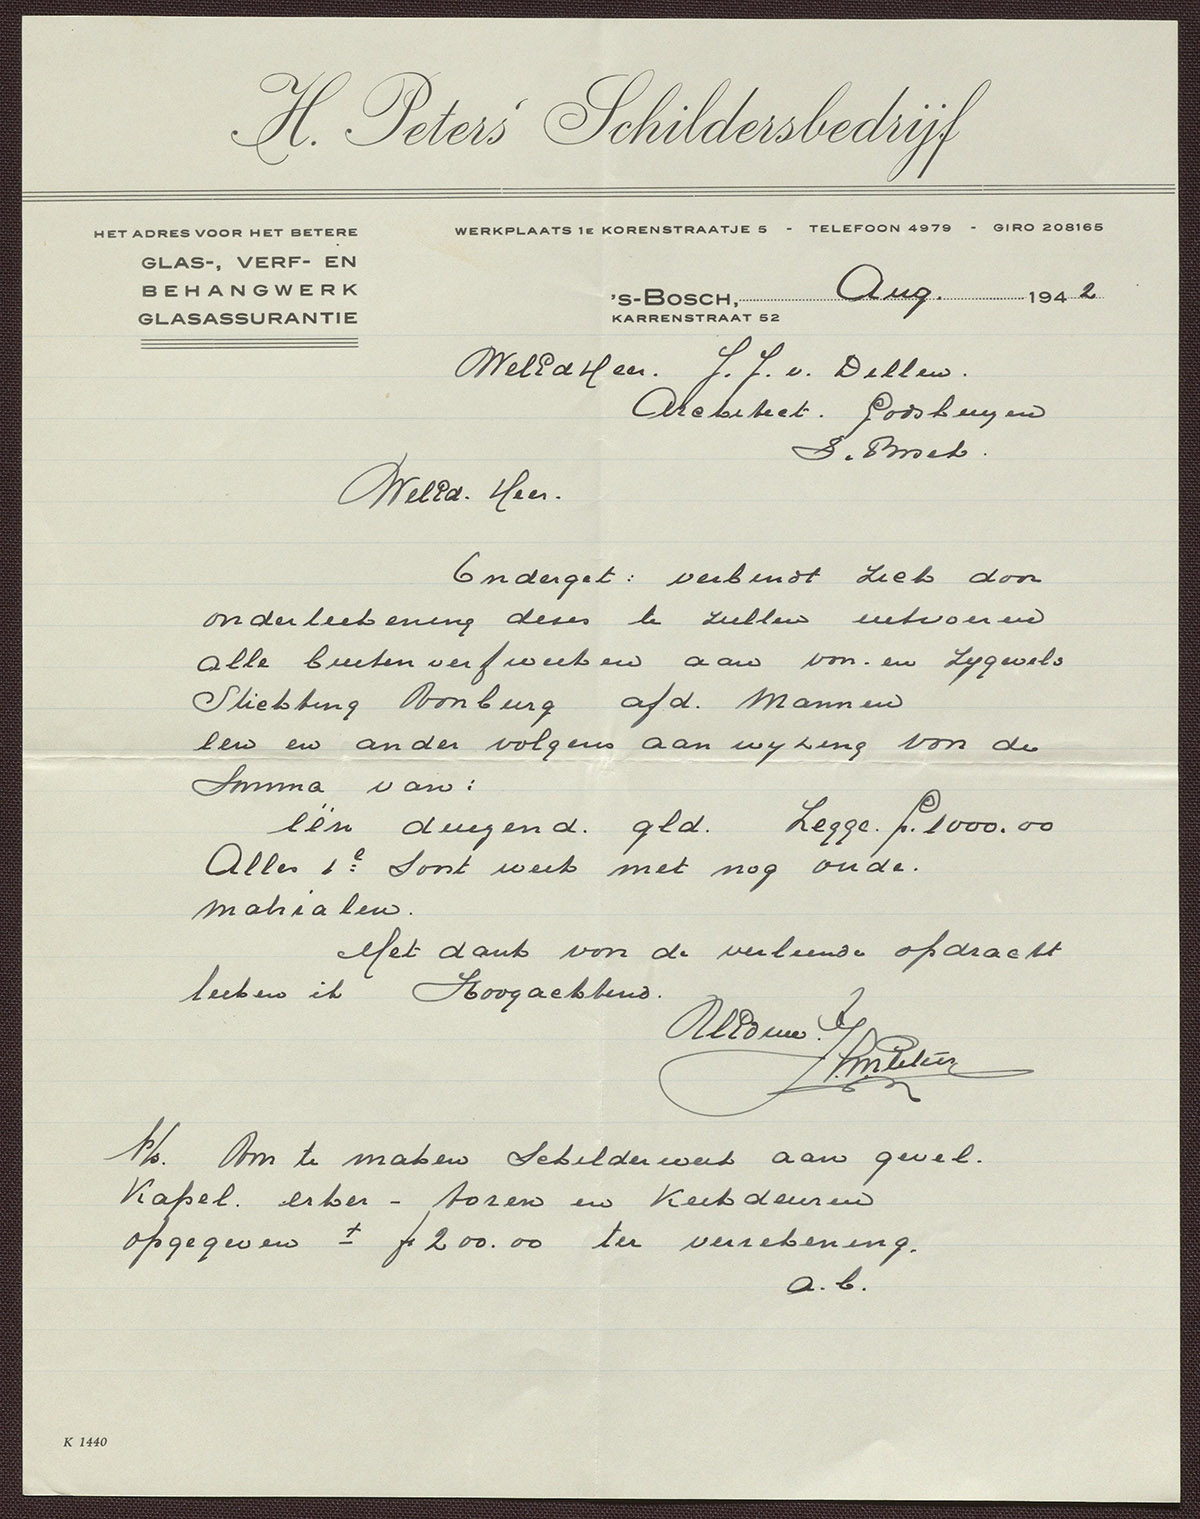 H. Peters' Schildersbedrijf
HET ADRES VOOR HET BETERE
GLAS-, VERF- EN
BEHANGWERK
GLASASSURANTIE
WERKPLAATS 1E KORENSTRAATJE 5 - TELEFOON 4979 - GIRO 208165
's-BOSCH, Aug. 1942
KARRENSTRAAT 52
WelEd Heer. J. J. v. Dellen.
Architect. Godshuyzen
S. Bosch.
WelEd. Heer.
Onderget: verbindt zich door
onderteekening dezes te zullen uitvoeren
alle buitenverfwerken aan voor- en Zijgevels
Stichting Voorburg afd. Mannen
een en ander volgens aanwijzing voor de
Somma van:
één duizend. gld. Zegge. f. 1000.00
Alles 1e Soort werk met nog oude.
matrialen.
Met dank voor de verleende opdracht
teeken ik Hoogachtend.
UEd dw.
H. Peters
N/b. Voor te maken Schilderwerk aan gevel.
Kapel. erker - toren en Kerkdeuren
opgegeven ± f 200.00 ter verrekening.
a.b.
K 1440